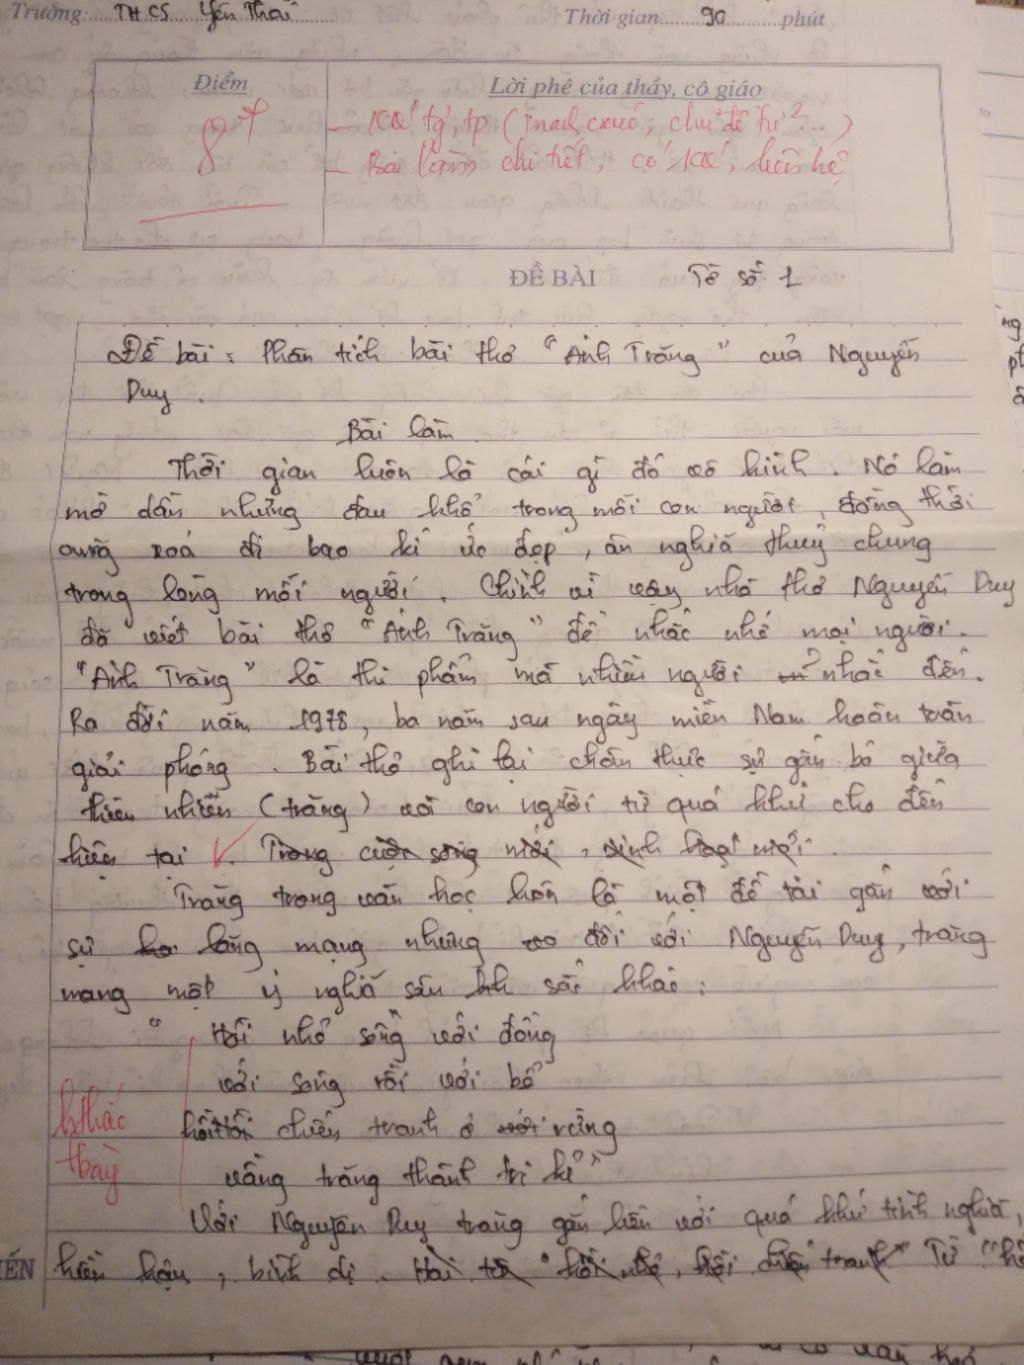 Trường: THCS Yên Thái
Thời gian 90 phút
Điểm
Lời phê của thầy, cô giáo
8
- tg, tp (mạch cxúc, chủ đề, tư²...)
- Bài làm chi tiết, có , liên hệ
ĐỀ BÀI
Tờ số 1
Đề bài: Phân tích bài thơ "Ánh Trăng" của Nguyễn
Duy.
Bài làm
Thời gian luôn là cái gì đó vô hình. Nó làm
mờ dần những đau khổ trong mỗi con người, đồng thời
cũng xoá đi bao kí ức đẹp, ân nghĩa thuỷ chung
trong lòng mỗi người. Chính vì vậy nhà thơ Nguyễn Duy
đã viết bài thơ "Ánh Trăng" để nhắc nhở mọi người.
"Ánh Trăng" là thi phẩm mà nhiều người nhắc đến.
Ra đời năm 1978, ba năm sau ngày miền Nam hoàn toàn
giải phóng. Bài thơ ghi lại chân thực sự gắn bó giữa
thiên nhiên (trăng) với con người từ quá khứ cho đến
hiện tại. Trong cuộc sống mới, sinh hoạt mới.
Trăng trong văn học luôn là một đề tài gắn với
sự lãng mạng nhưng đối với Nguyễn Duy, trăng
mang một ý nghĩa sâu sắc khác:
" Hồi nhỏ sống với đồng
với sông rồi với bể
hồi chiến tranh ở rừng
vầng trăng thành tri kỉ"
khác
thay
Với Nguyễn Duy trăng gắn liền với quá khứ tình nghĩa,
hiền hậu, bình dị. Hai từ "hồi nhỏ, hồi chiến tranh" Từ "hồ
ẾN